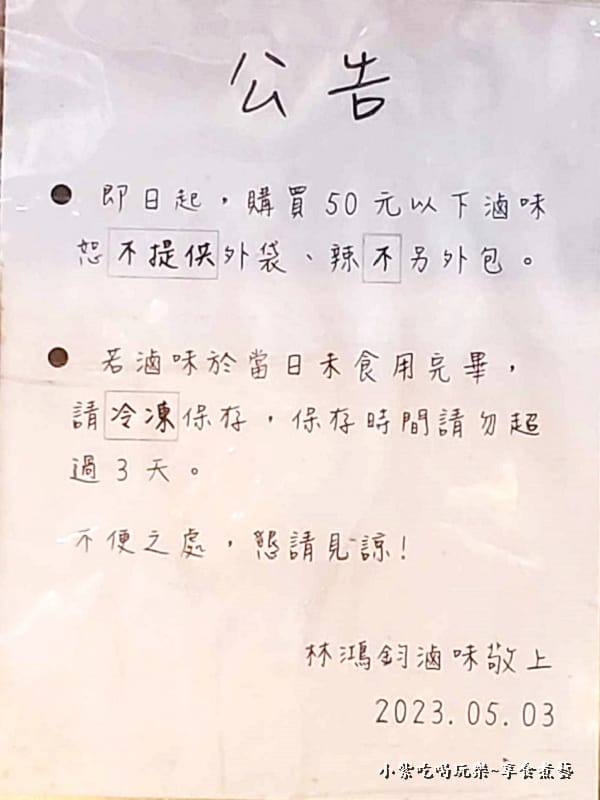 公告
● 即日起，購買50元以下滷味
恕不提供外袋、辣不另外包。
● 若滷味於當日未食用完畢，
請冷凍保存，保存時間請勿超
過3天。
不便之處，懇請見諒！
林鴻鈞滷味敬上
2023.05.03
小紫吃喝玩樂~享食煮藝